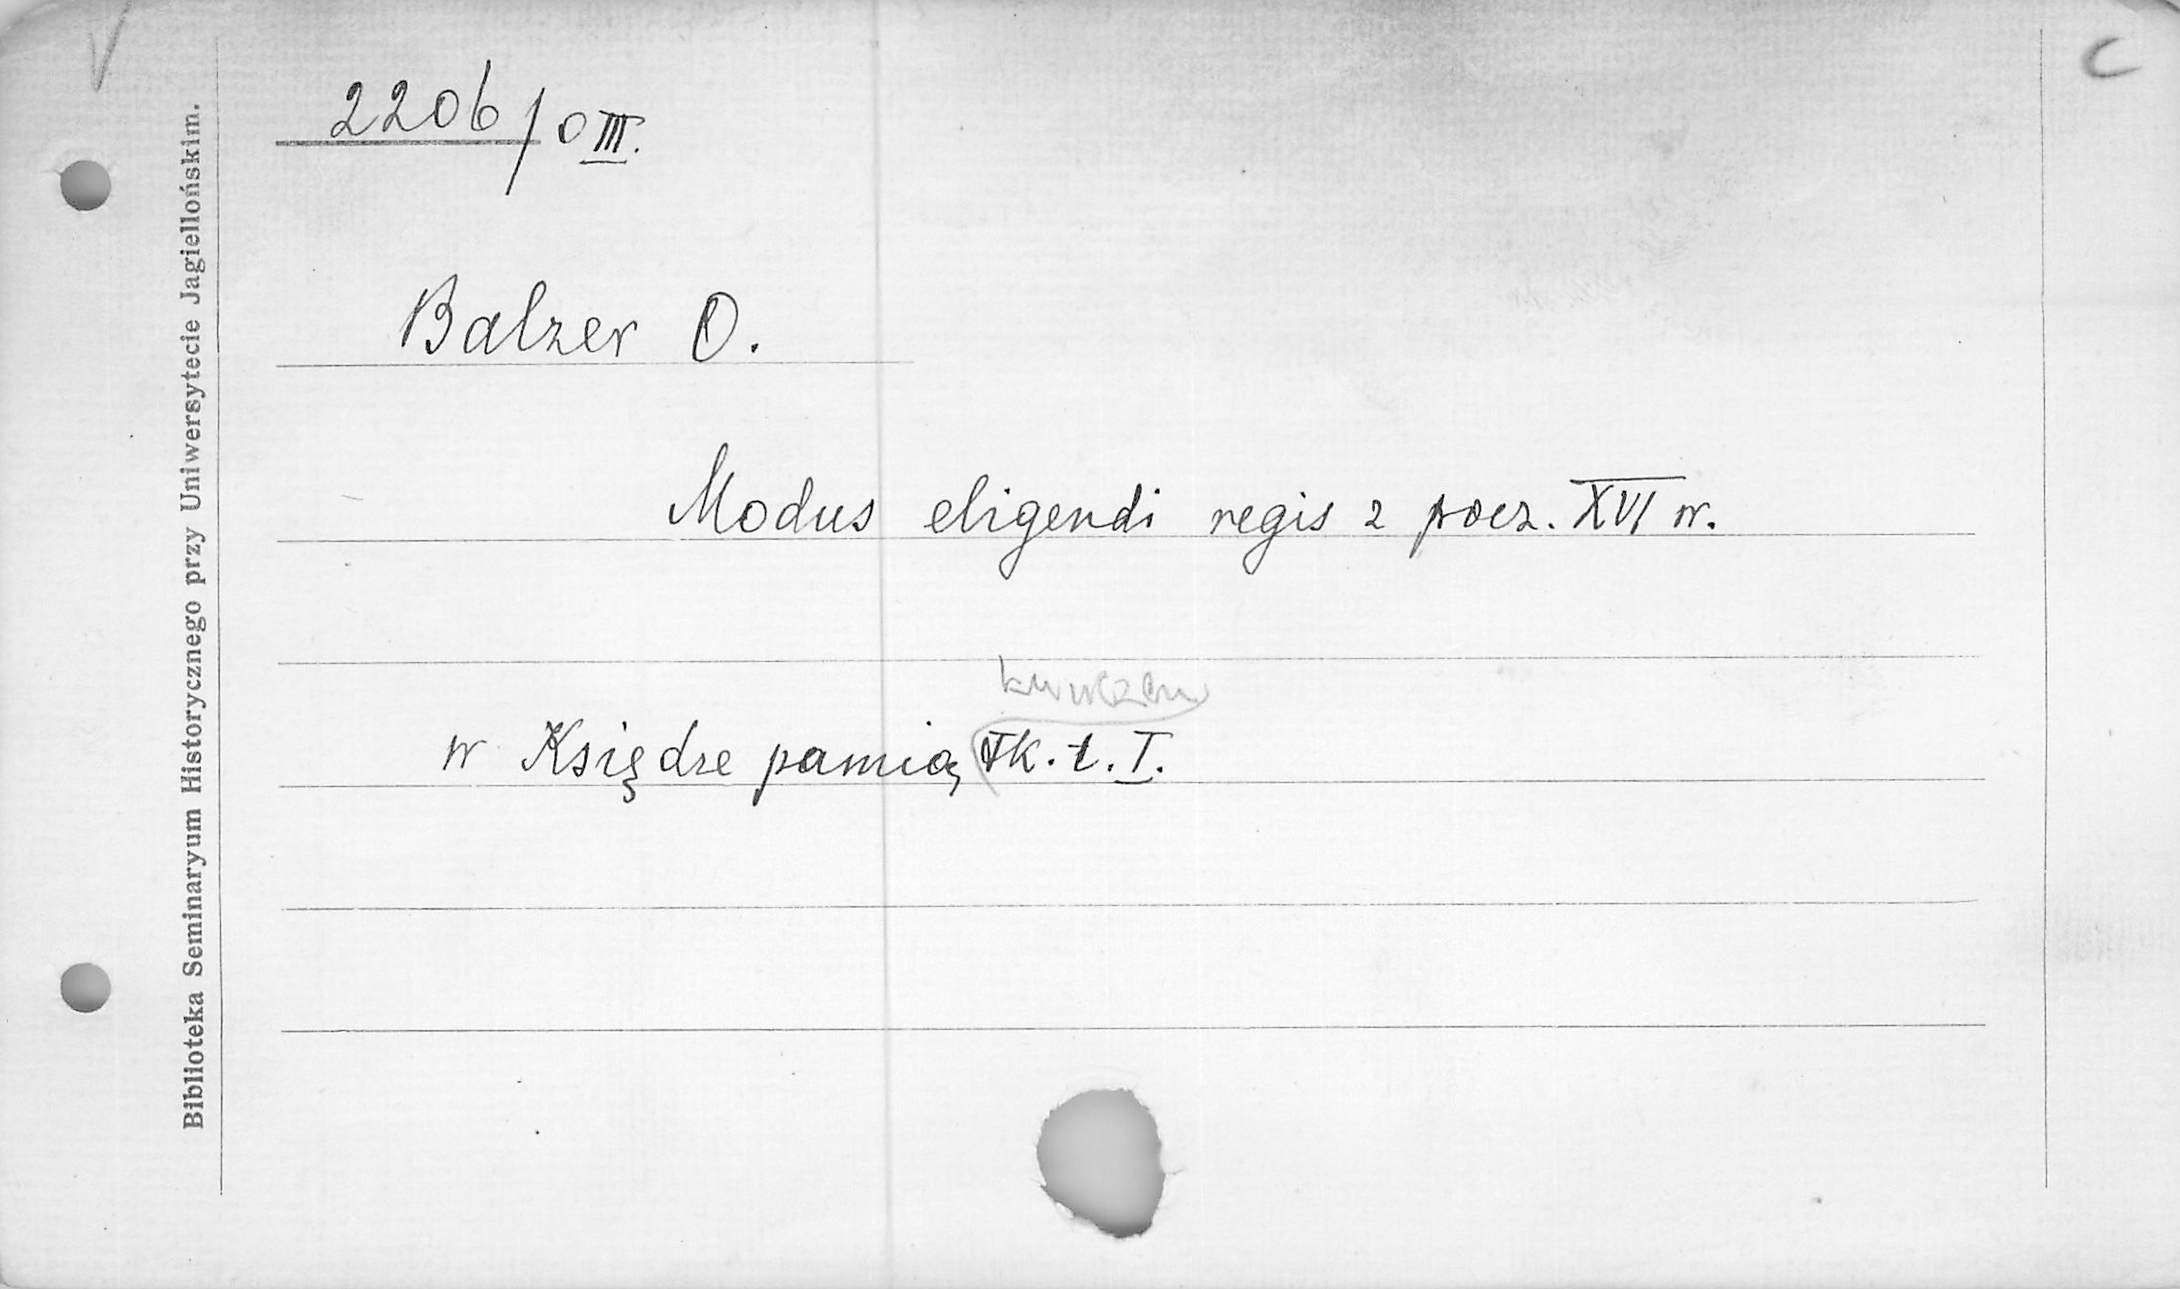 2206/O III.
Balzer O.
Modus eligendi regis z pocz. XVI w.
w Księdze pamiątk. t. I.
Biblioteka Seminaryum Historycznego przy Uniwersytecie Jagiellońskim.
C